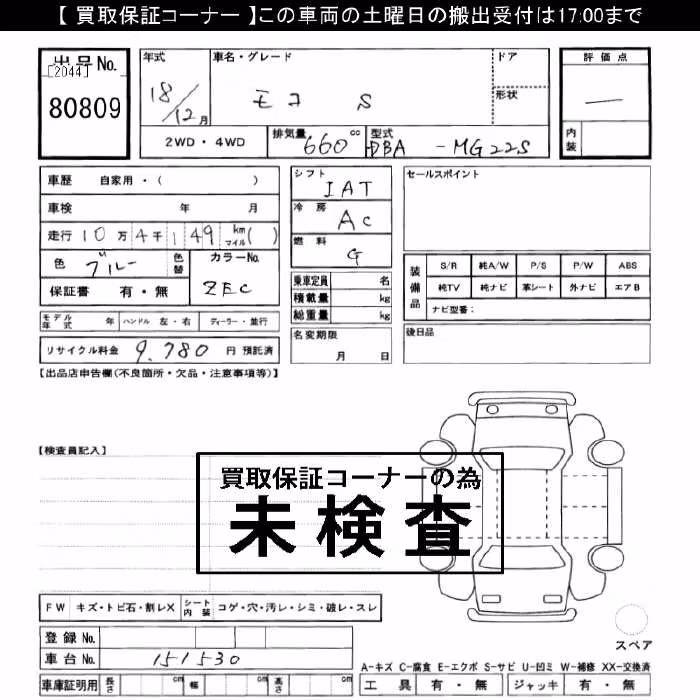 【 買取保証コーナー 】この車両の土曜日の搬出受付は17:00まで
出品No.
[2044]
80809
年式
18/12月
車名・グレード
モコ S
ドア
形状
評価点
―
内装
2WD・4WD
排気量 660 cc
型式 DBA - MG22S
車歴 自家用・( )
車検 年 月
走行 10万4千149 km マイル( )
色 ブルー 色替
カラーNo. ZEC
保証書 有・無
シフト IAT
冷房 AC
燃料 G
乗車定員 名
積載量 kg
総重量 kg
セールスポイント
装備品
S/R 純A/W P/S P/W ABS
純TV 純ナビ 革シート 外ナビ エアB
ナビ型番:
モデル年式 年 ハンドル 左・右 ディーラー・並行
名変期限 月 日
後日品
リサイクル料金 9,780 円 預託済
【出品店申告欄(不良箇所・欠品・注意事項等)】
【検査員記入】
買取保証コーナーの為
未検査
FW キズ・トビ石・割レX シート内装 コゲ・穴・汚レ・シミ・破レ・スレ
スペア
登録No.
車台No. 151530
A-キズ C-腐食 E-エクボ S-サビ U-凹ミ W-補修 XX-交換済
車庫証明用 長さ cm 幅 cm 高さ cm
工具 有・無 ジャッキ 有・無